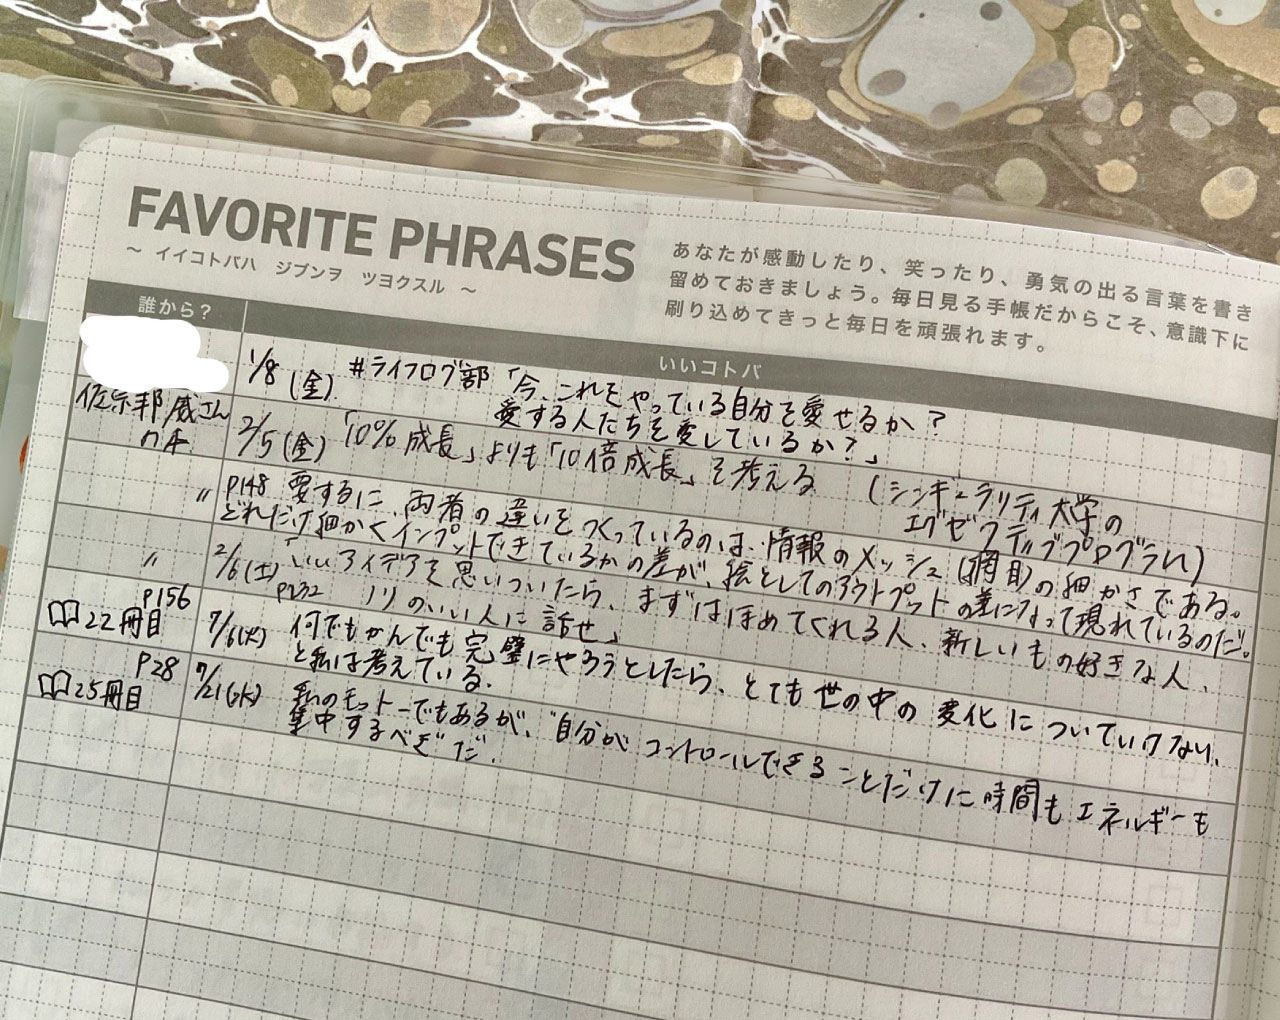 FAVORITE PHRASES
～ イイコトバハ ジブンヲ ツヨクスル ～
あなたが感動したり、笑ったり、勇気の出る言葉を書き
留めておきましょう。毎日見る手帳だからこそ、意識下に
刷り込めてきっと毎日を頑張れます。
誰から？
いいコトバ
1/8(金) #ライフログ部「今、これをやっている自分を愛せるか？
愛する人たちを愛しているか？」
佐宗邦威さん
2/5(金)「10%成長」よりも「10倍成長」を考える (シンギュラリティ大学の
エグゼクティブプログラム)
〃
P148 要するに、両者の違いをつくっているのは、情報のメッシュ(網目)の細かさである。
どれだけ細かくインプットできているかの差が、絵としてのアウトプットの差になって現れているのだ。
〃
2/6(土)「いいアイデアを思いついたら、まずはほめてくれる人、新しいもの好きな人、
P232 ノリのいい人に話せ」
P156
22冊目
7/6(火) 何でもかんでも完璧にやろうとしたら、とても世の中の変化についていけない、
と私は考えている.
P28
25冊目
7/21(水) 私のモットーでもあるが、自分がコントロールできることだけに時間もエネルギーも
集中するべきだ.